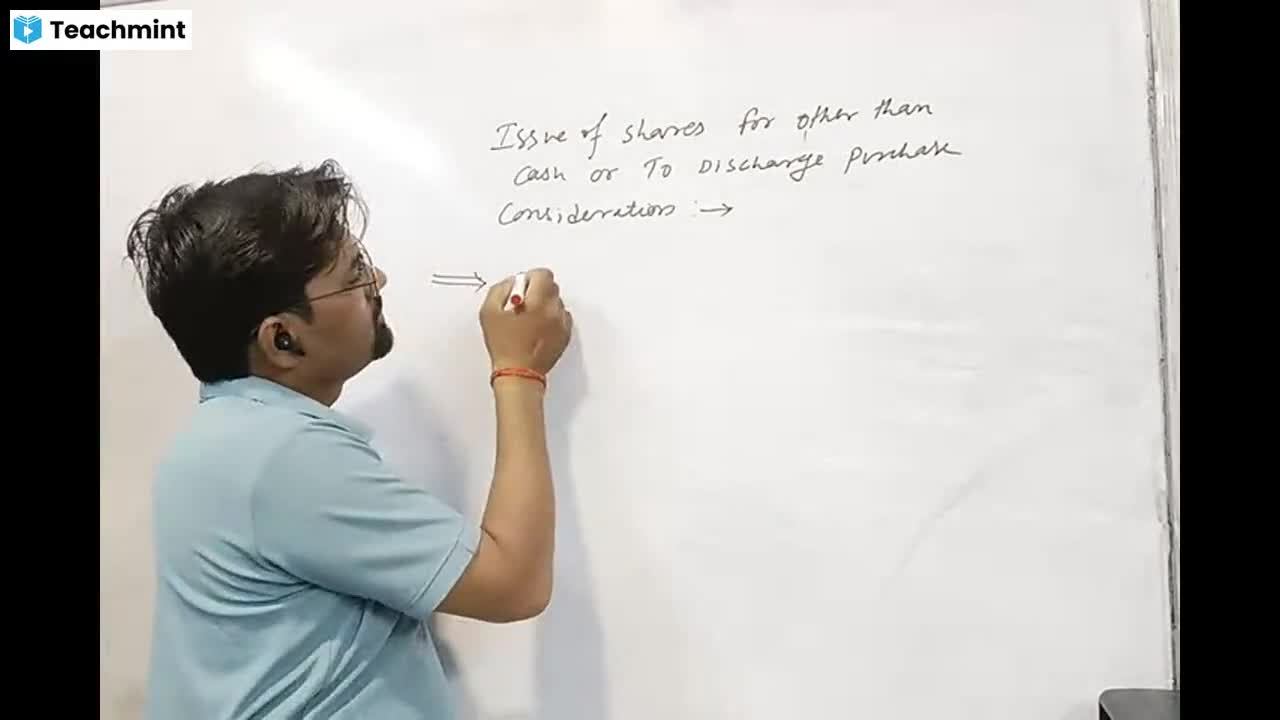 Teachmint
Issue of shares for other than
Cash or To Discharge Purchase
Consideration :→
⇒